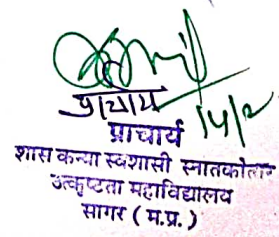 प्राचार्य
14/2
प्राचार्य
शास कन्या स्वशासी स्नातकोत्तर
उत्कृष्टता महाविद्यालय
सागर (म.प्र.)